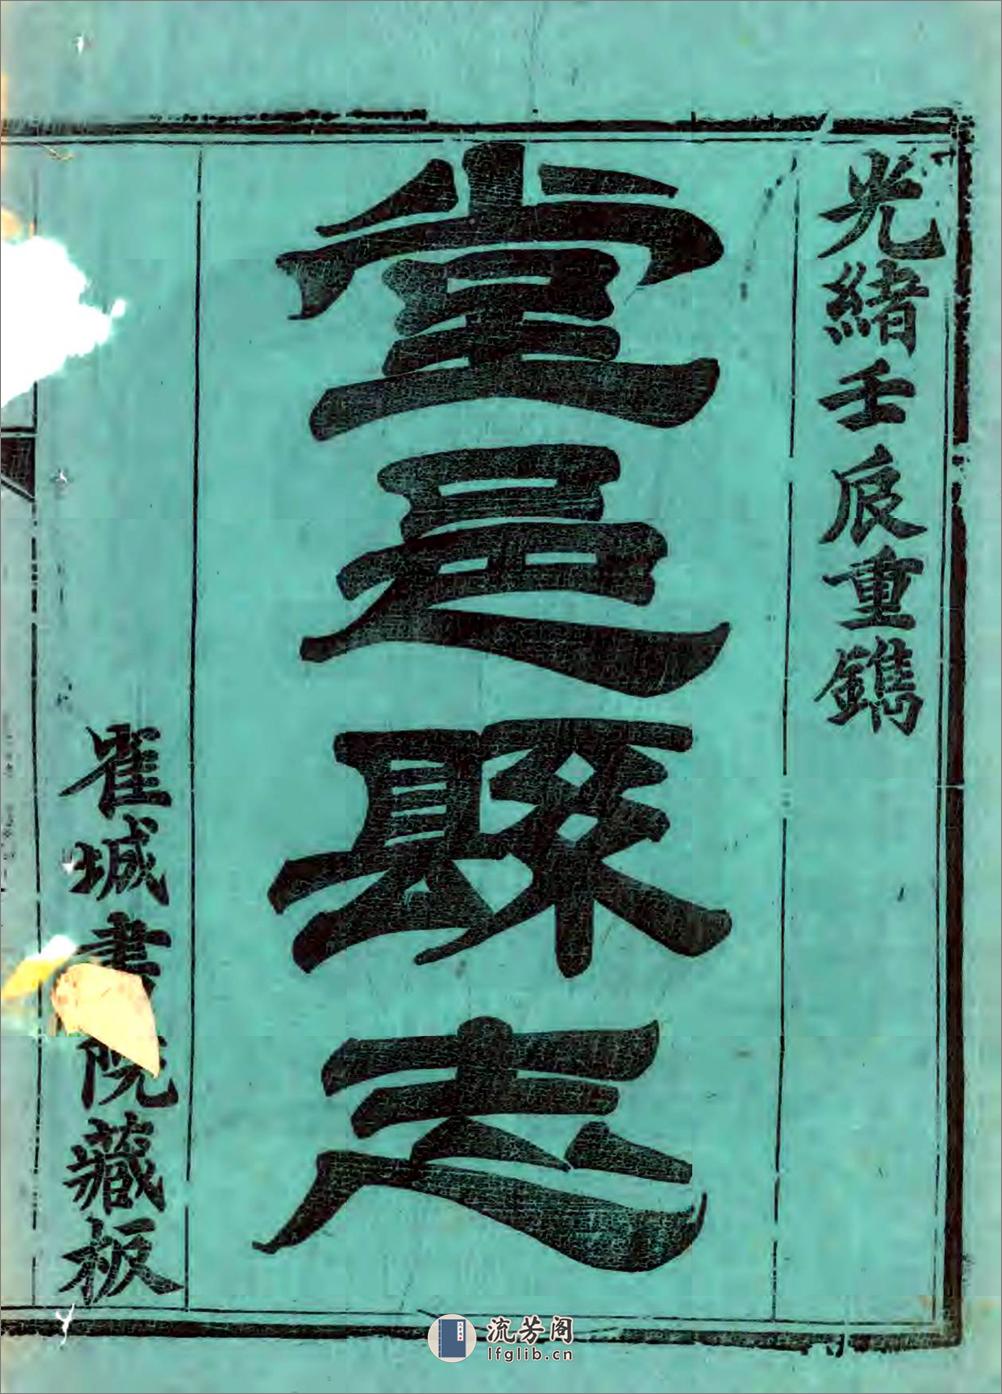 光緒壬辰重鐫
堂邑縣志
雀城書院藏板
流芳阁
lfglib.cn